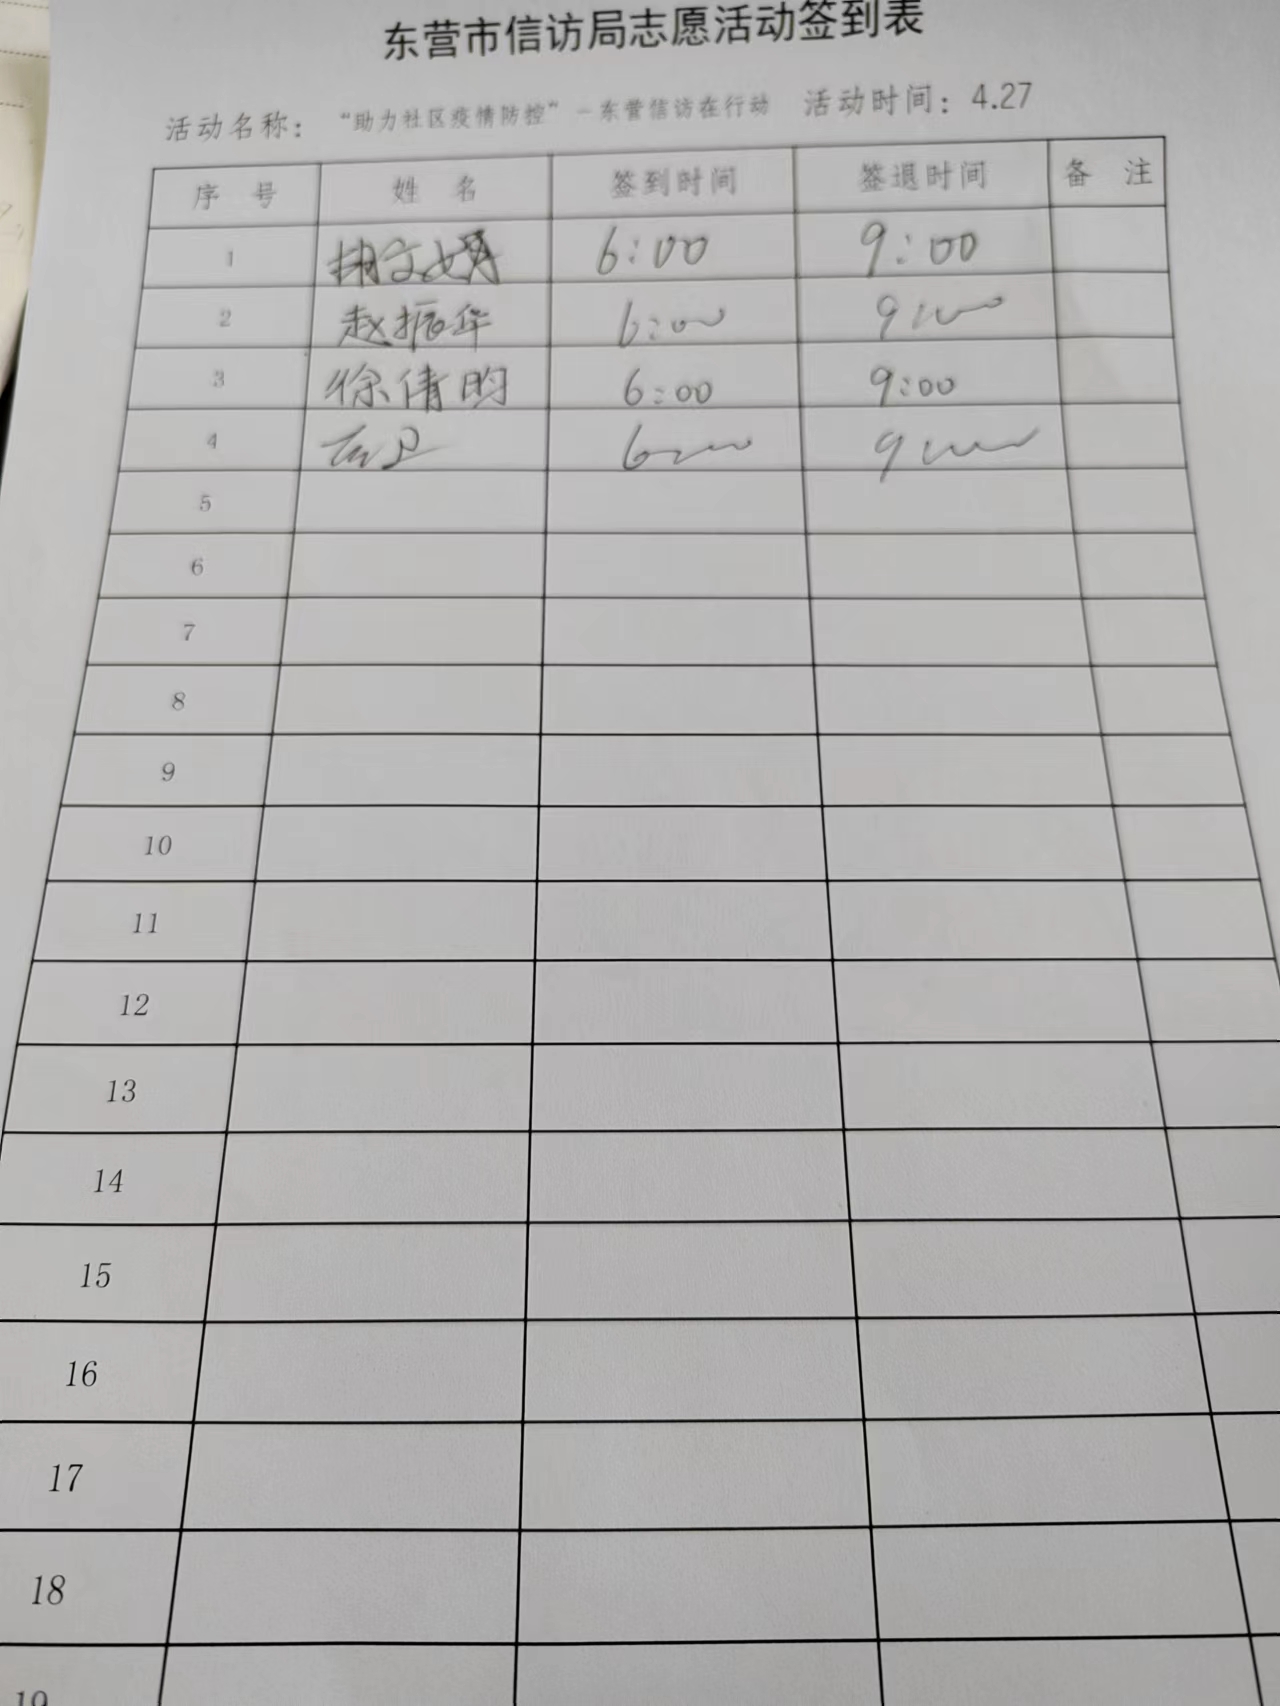 东营市信访局志愿活动签到表
活动名称：“助力社区疫情防控”－东营信访在行动 活动时间：4.27
序 号 姓 名 签到时间 签退时间 备 注
1 6:00 9:00
2 赵振华 6:00 9:00
3 徐倩昀 6:00 9:00
4 6:00 9:00
5
6
7
8
9
10
11
12
13
14
15
16
17
18
19